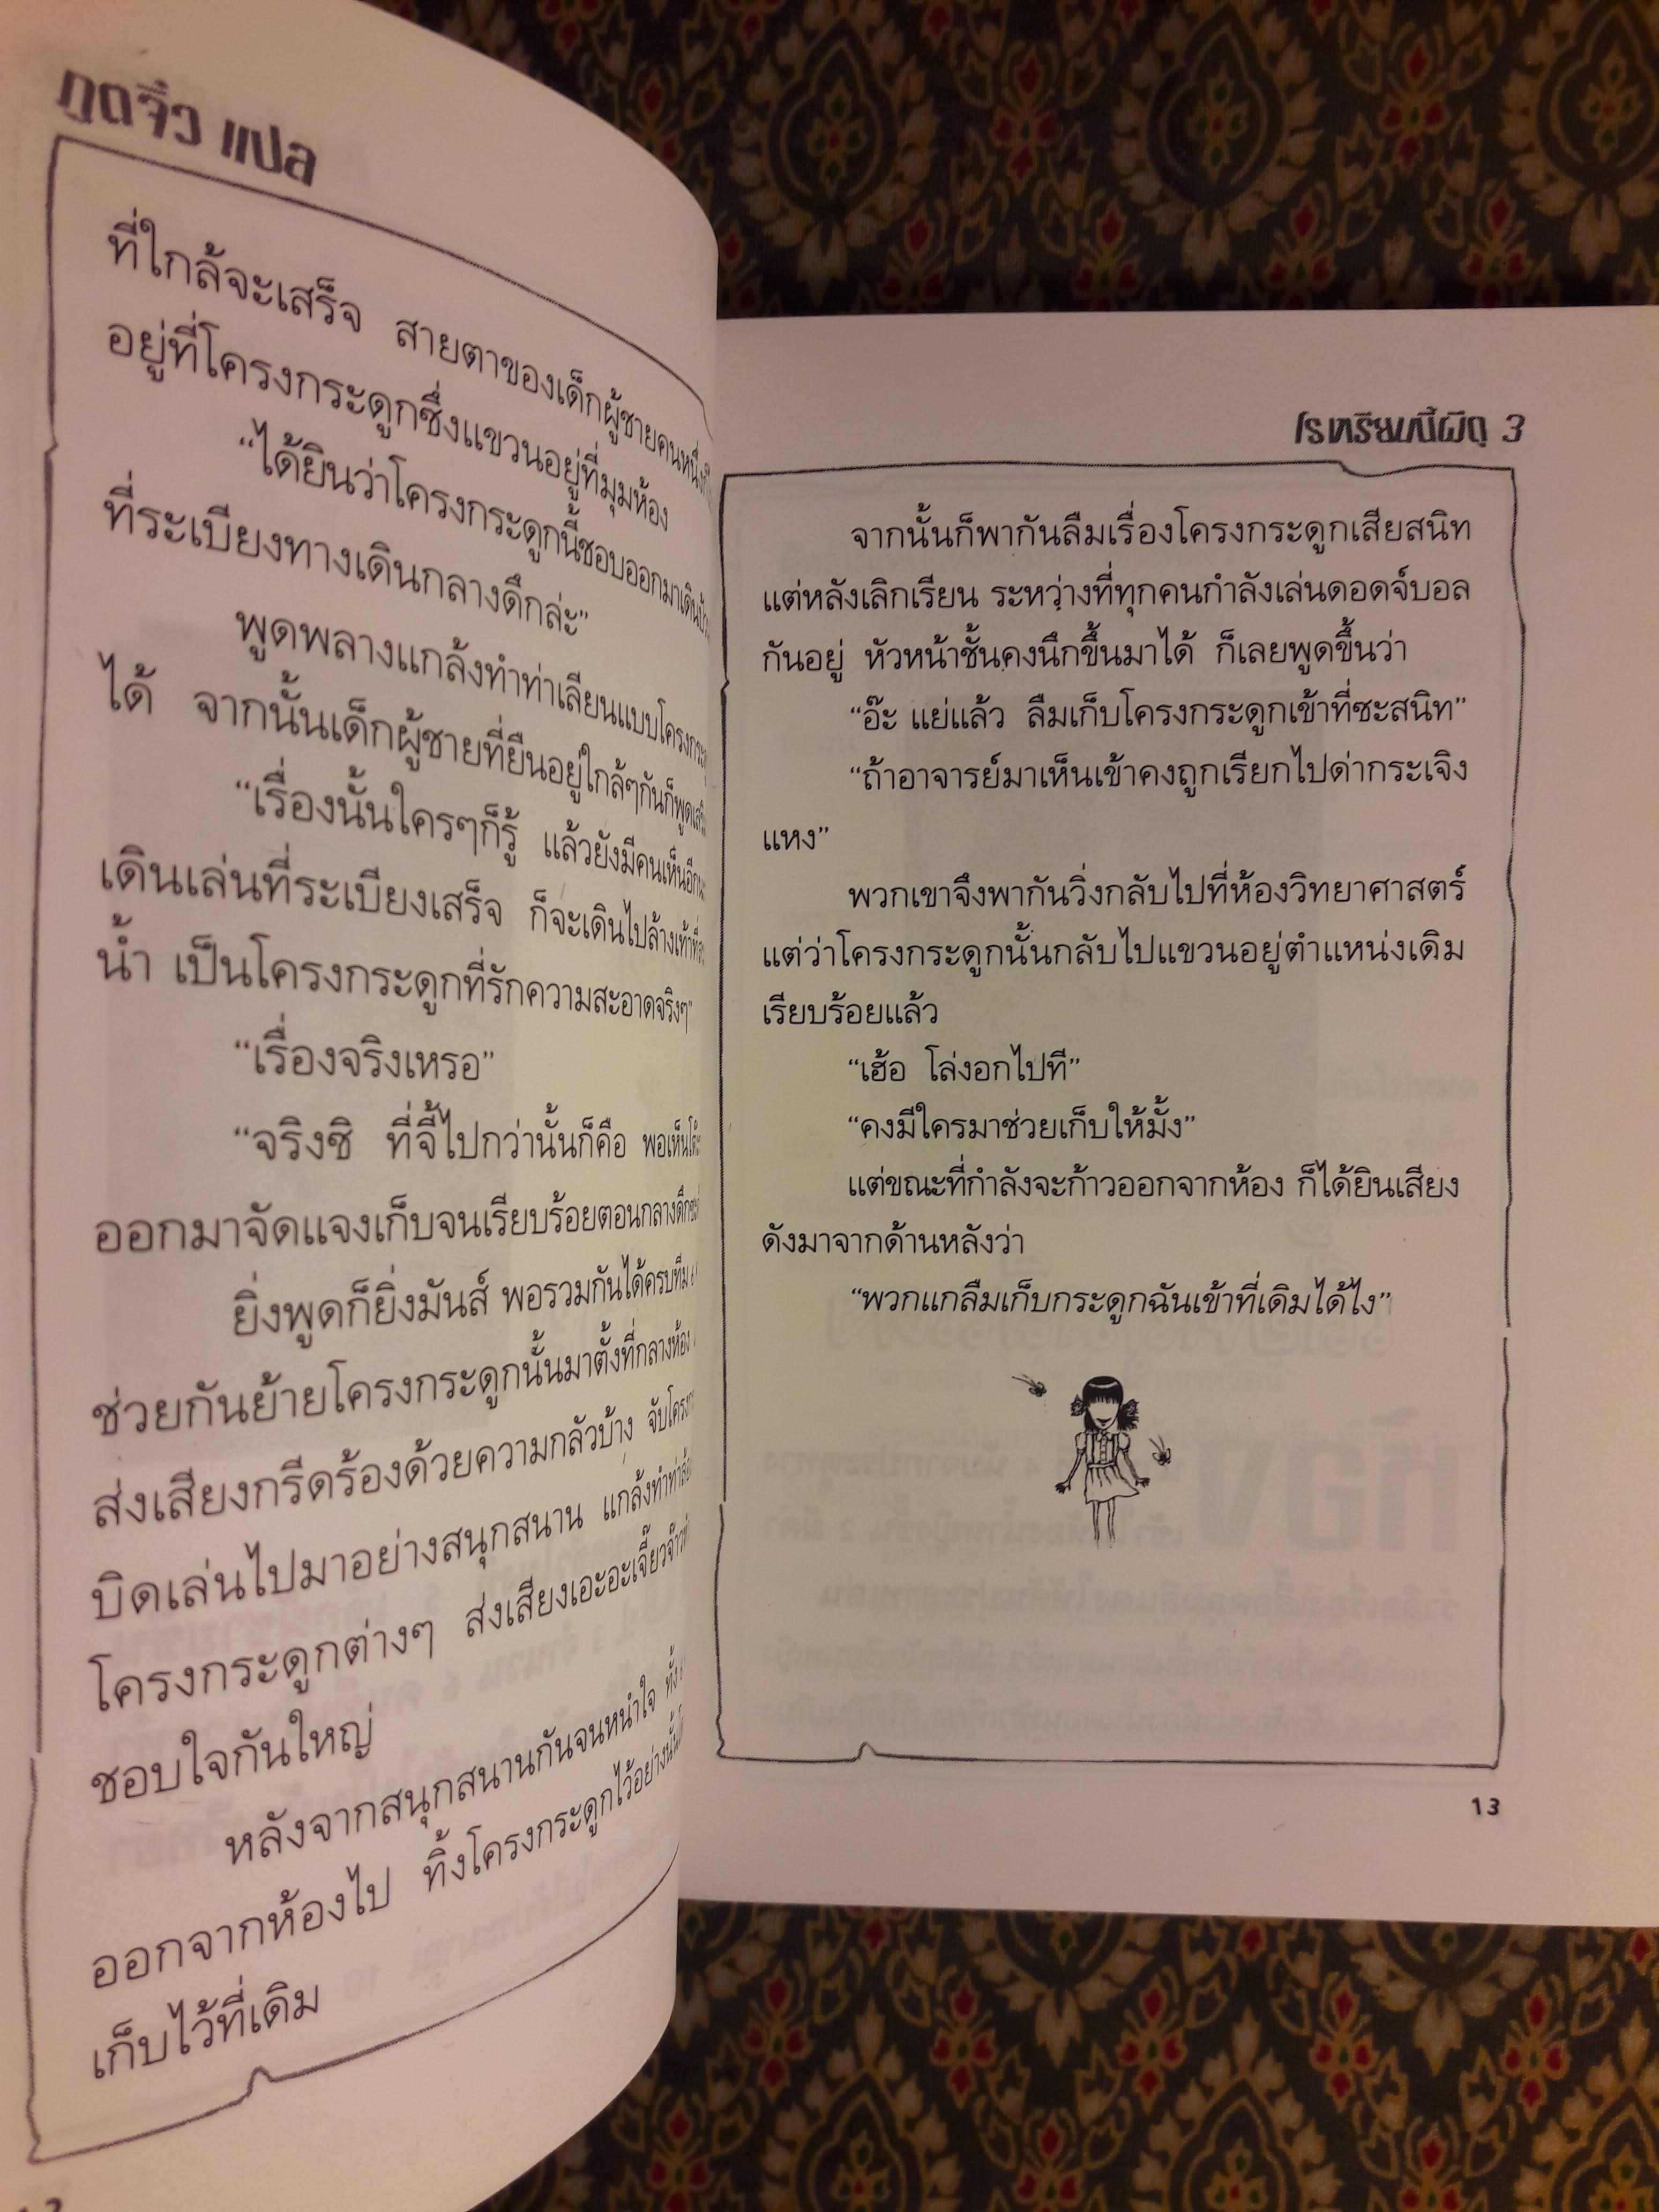 ภูตจิ๋ว แปล
ที่ใกล้จะเสร็จ สายตาของเด็กผู้ชายคนหนึ่ง
อยู่ที่โครงกระดูกซึ่งแขวนอยู่ที่มุมห้อง
“ได้ยินว่าโครงกระดูกนี้ชอบออกมาเดิน
ที่ระเบียงทางเดินกลางดึกล่ะ”
พูดพลางแกล้งทำท่าเลียนแบบ
ได้ จากนั้นเด็กผู้ชายที่ยืนอยู่ใกล้ๆกันก็พูด
“เรื่องนั้นใครๆก็รู้ แล้วยังมีคนเห็น
เดินเล่นที่ระเบียงเสร็จ ก็จะเดินไปล้างเท้าที่
น้ำ เป็นโครงกระดูกที่รักความสะอาดจริงๆ”
“เรื่องจริงเหรอ”
“จริงซิ ที่จี้ไปกว่านั้นก็คือ พอเห็น
ออกมาจัดแจงเก็บจนเรียบร้อยตอนกลางดึก
ยิ่งพูดก็ยิ่งมันส์ พอรวมกันได้ครบทีม
ช่วยกันย้ายโครงกระดูกนั้นมาตั้งที่กลางห้อง
ส่งเสียงกรีดร้องด้วยความกลัวบ้าง จับ
บิดเล่นไปมาอย่างสนุกสนาน แกล้งทำท่า
โครงกระดูกต่างๆ ส่งเสียงเอะอะเจี๊ยวจ๊าว
ชอบใจกันใหญ่
หลังจากสนุกสนานกันจนหนำใจ ทั้ง
ออกจากห้องไป ทิ้งโครงกระดูกไว้อย่างนั้น
เก็บไว้ที่เดิม
โรงเรียนนี้ผีดุ 3
จากนั้นก็พากันลืมเรื่องโครงกระดูกเสียสนิท
แต่หลังเลิกเรียน ระหว่างที่ทุกคนกำลังเล่นดอดจ์บอล
กันอยู่ หัวหน้าชั้นคงนึกขึ้นมาได้ ก็เลยพูดขึ้นว่า
“อ๊ะ แย่แล้ว ลืมเก็บโครงกระดูกเข้าที่ซะสนิท”
“ถ้าอาจารย์มาเห็นเข้าคงถูกเรียกไปด่ากระเจิง
แหง”
พวกเขาจึงพากันวิ่งกลับไปที่ห้องวิทยาศาสตร์
แต่ว่าโครงกระดูกนั้นกลับไปแขวนอยู่ตำแหน่งเดิม
เรียบร้อยแล้ว
“เฮ้อ โล่งอกไปที”
“คงมีใครมาช่วยเก็บให้มั้ง”
แต่ขณะที่กำลังจะก้าวออกจากห้อง ก็ได้ยินเสียง
ดังมาจากด้านหลังว่า
“พวกแกลืมเก็บกระดูกฉันเข้าที่เดิมได้ไง”
13